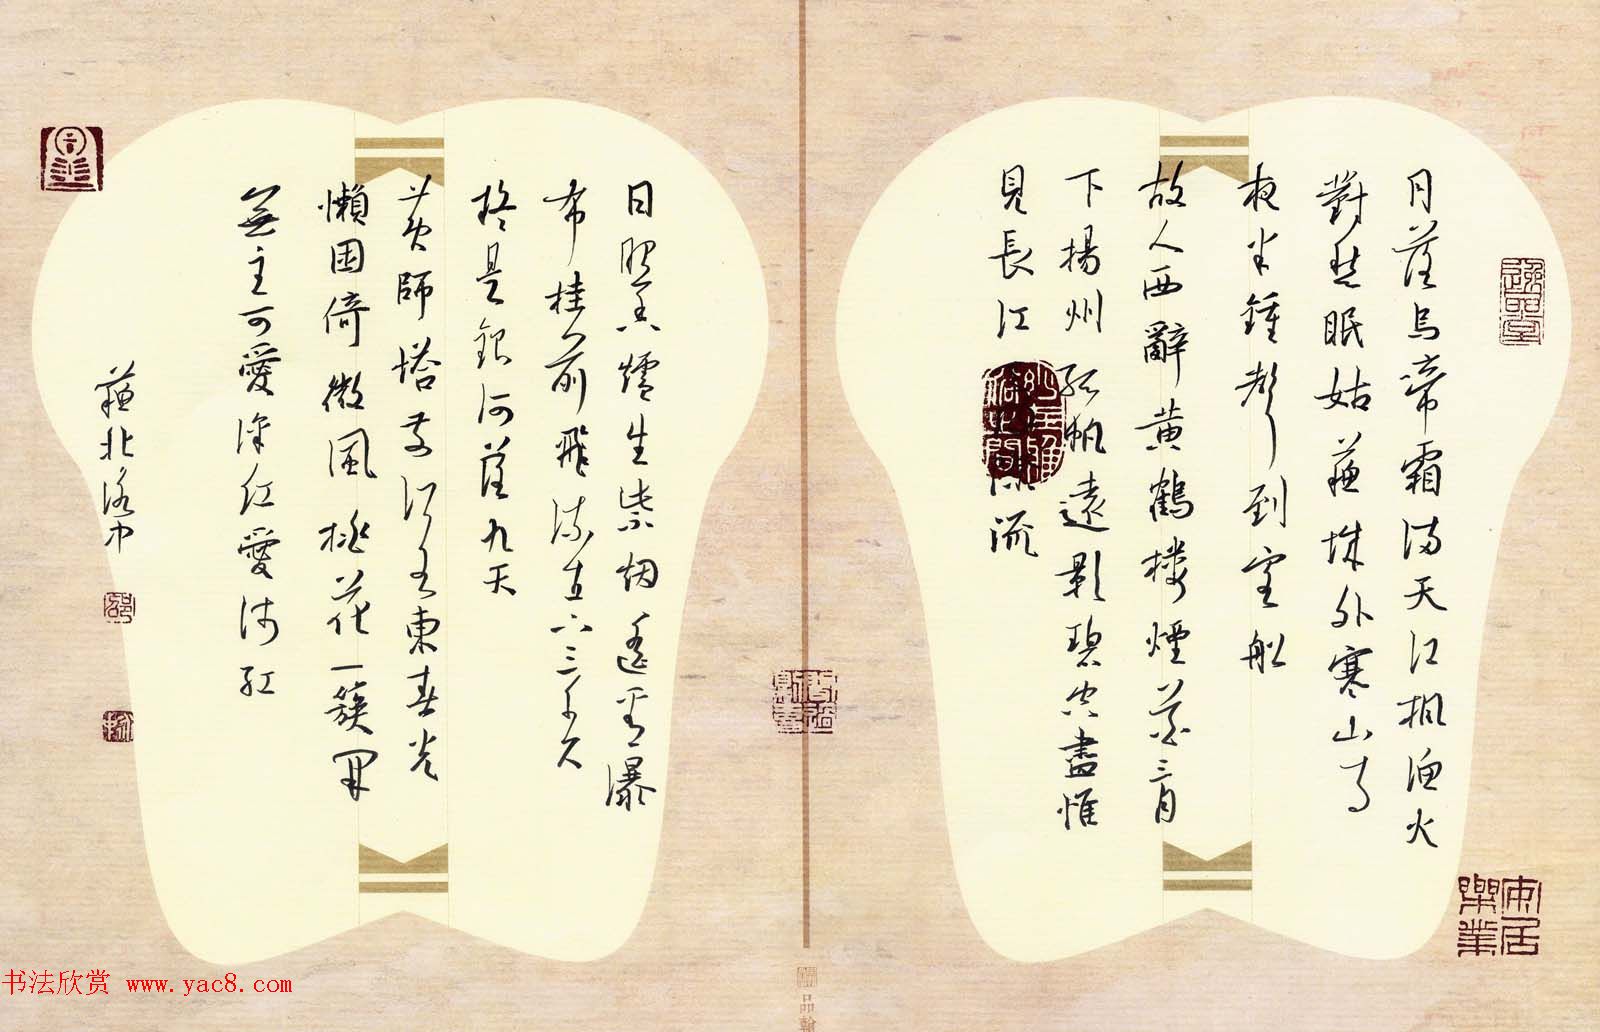 月落烏啼霜滿天江楓漁火
對愁眠姑蘇城外寒山寺
夜半鍾聲到客船
故人西辭黃鶴樓煙花三月
下揚州孤帆遠影碧空盡惟
見長江流
日照香爐生紫烟遙看瀑
布桂前飛流直下三千尺
疑是銀河落九天
黃師塔前江水東春光
懶困倚微風桃花一簇開
無主可愛深紅愛淺紅
蘇北
安居樂業
品翰
书法欣赏 www.yac8.com